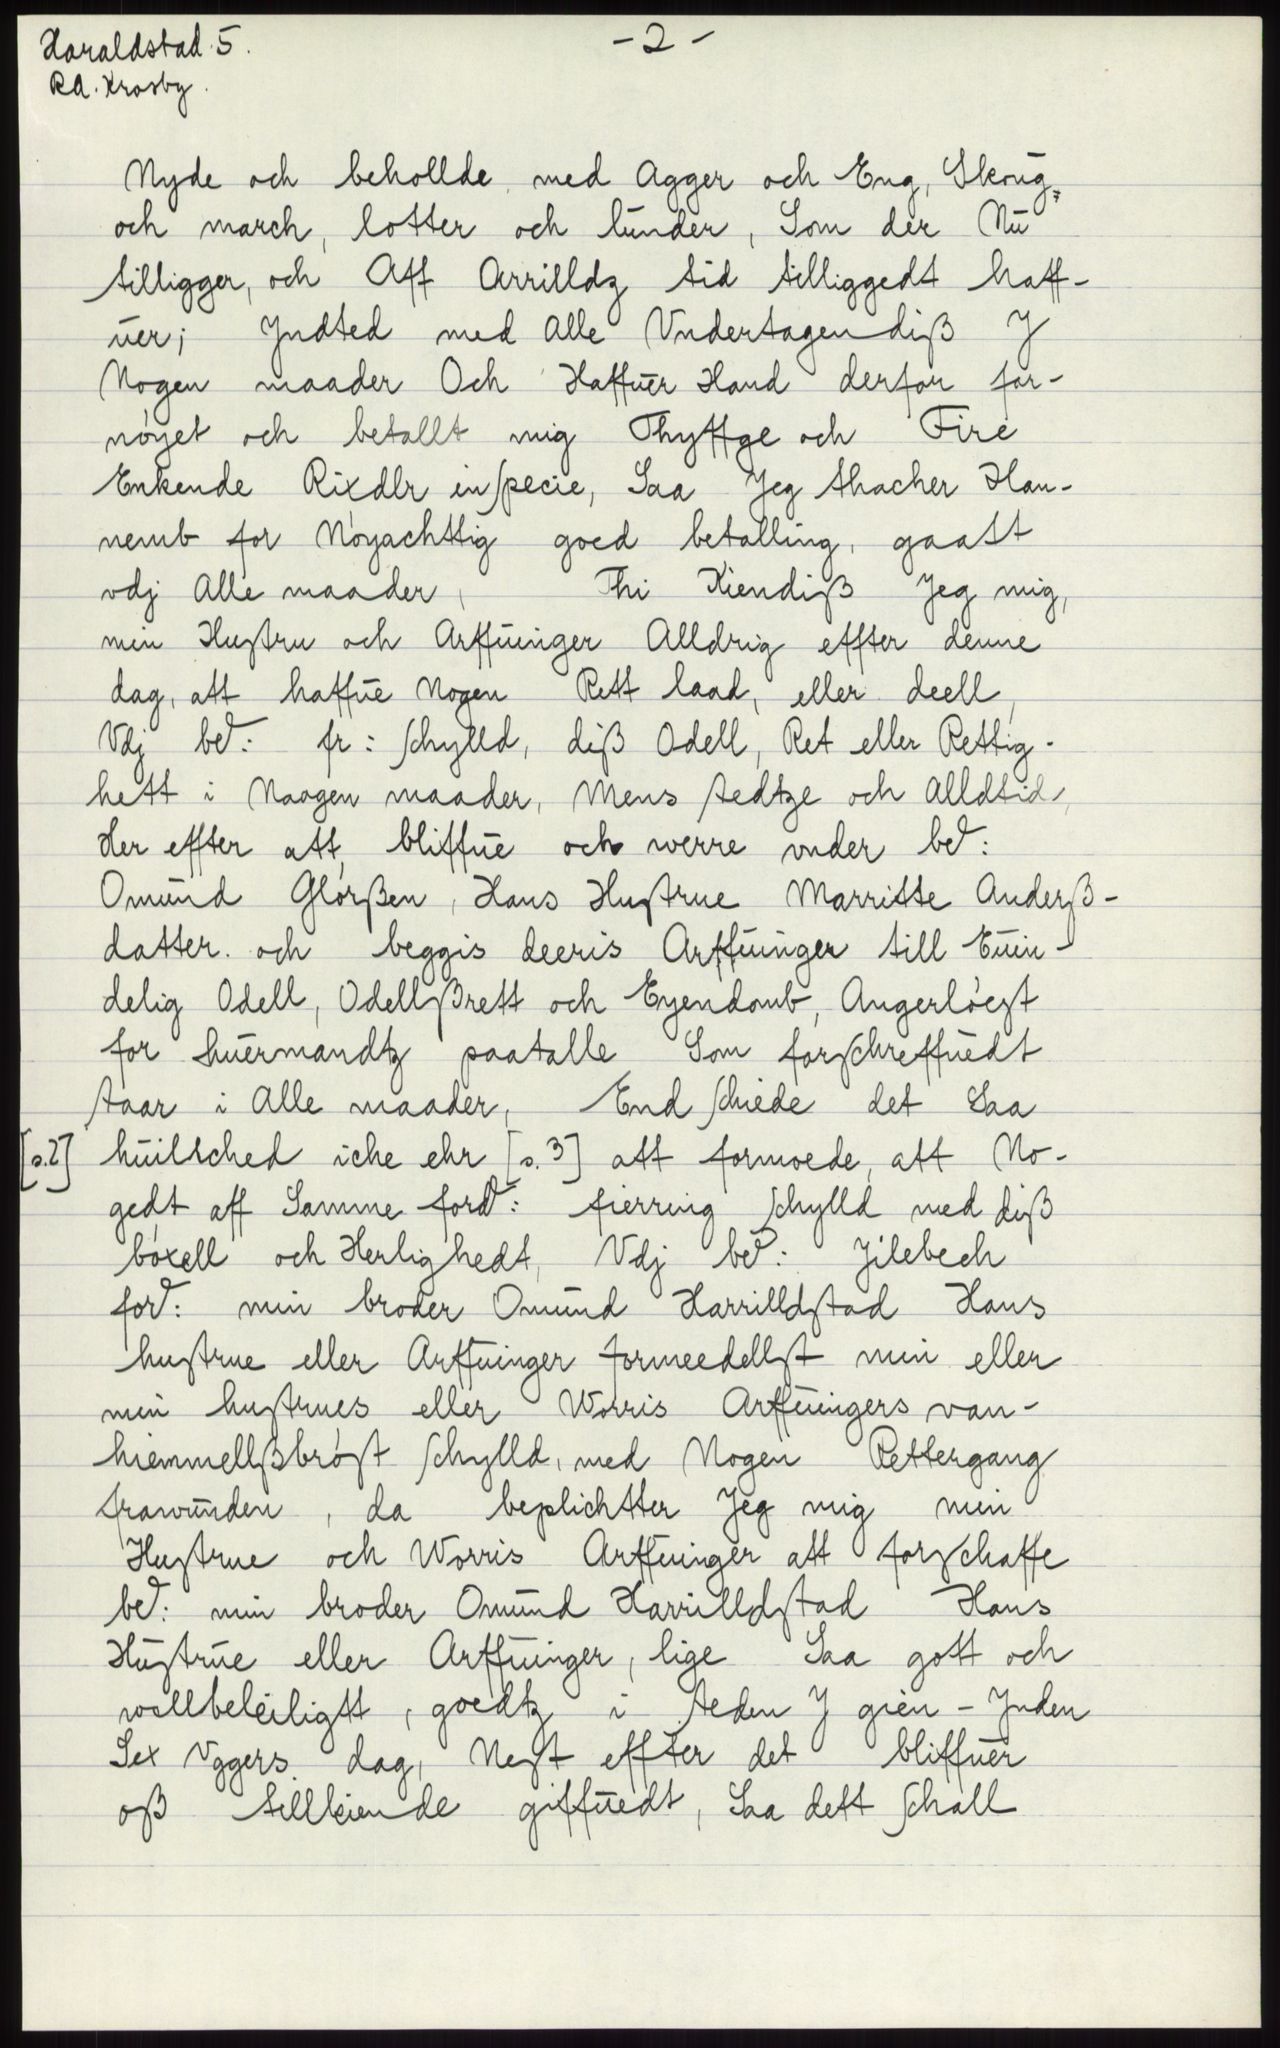 Haraldstad 5.
- 2 -
RA. Krosby.
Nyde och behollde med Agger och Eng, Skoug,
och march, lotter och lunder, Som der Nu
tilligger, och Aff Arrilldz tid tilliggedt haff-
uer; Jndted med Alle Vndertagendiß J
Nogen maader Och Haffuer Hand derfor for-
nøyet och betallt mig Thyffge och Fire
Enkende Rixdlr in specie, Saa Jeg thacher Han-
nemb for Nøyachttig goed betalling, gaatt
vdj Alle maader, Thi Kiendiß Jeg mig,
min Hustru och Arffuinger Alldrig effter denne
dag, att haffue Nogen Rett laad, eller deell,
Vdj bed: fr: schylld, diß Odell, Ret eller Rettig-
hett i Naagen maader, Mens stedtze och Alldtid,
Her effter att bliffue och werre vnder bed:
Omund Glørßen, Hans Hustrue Marritte Anderß-
datter. och beggis deeris Arffuinger till Euin-
delig Odell, Odellßrett och Eyendomb, Angerløest
for huermandtz paatalle Som forschreffuedt
staar i Alle maader, End schiede det Saa
[s.2] huilsched iche ehr [s.3] att formoede, att No-
gedt aff Samme ford: fierring schylld med diß
bøxell och Herlighedt, Vdj bed: Jilebech
ford: min broder Omund Harrilldstad Hans
hustrue eller Arffuinger formeedellst min eller
min hustrues eller Worris Arffuingers van-
hiemmellßbrøst schylld, med Nogen Rettergang
frawunden, da beplichtter Jeg mig min
Hustrue och Worris Arffuinger att forschaffe
bed: min broder Omund Harrilldstad Hans
Hustrue eller Arffuinger, lige Saa gott och
wellbeleiligtt, goedtz i steden J gien - Jnden
Sex Vggers dag, Nest effter det bliffuer
oß tillkiende giffuedt, Saa dett schall